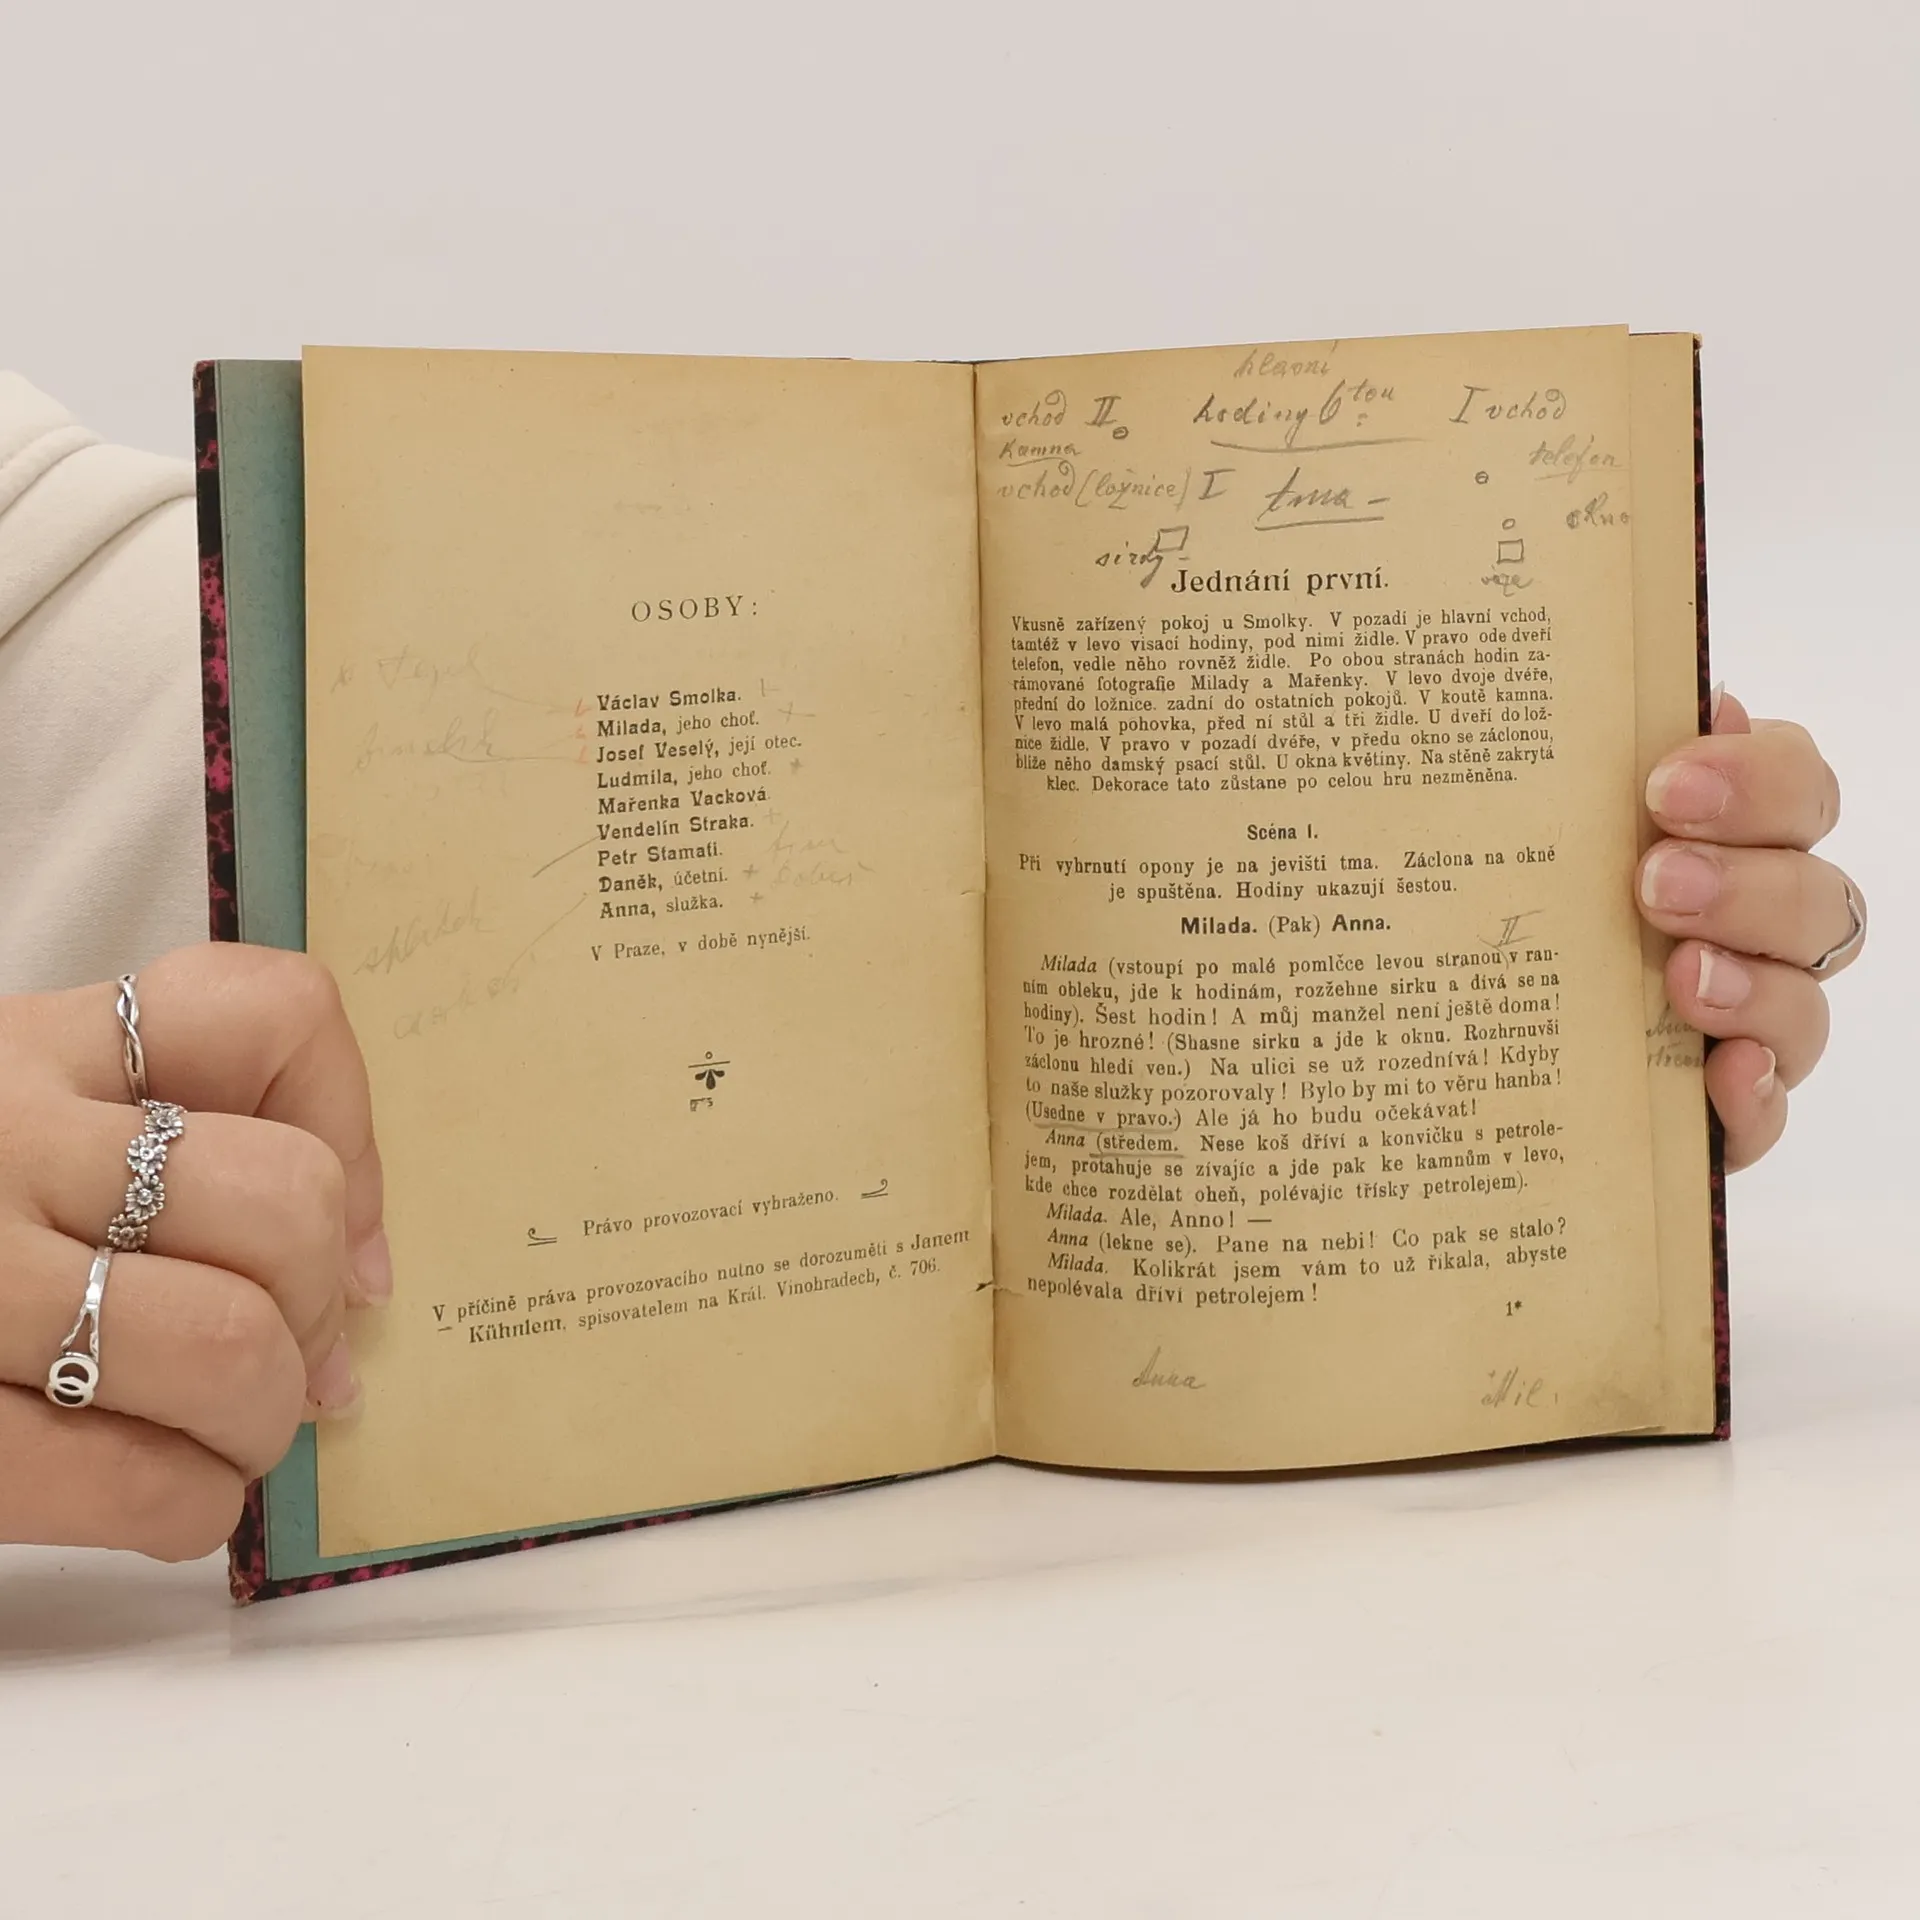 OSOBY:
Václav Smolka.
Milada, jeho choť.
Josef Veselý, její otec.
Ludmila, jeho choť.
Mařenka Vacková.
Vendelín Straka.
Petr Stamati.
Daněk, účetní.
Anna, služka.
V Praze, v době nynější.
Právo provozovací vybraženo.
V příčině práva provozovacího nutno se dorozuměti s Janem
Kühnlem, spisovatelem na Král. Vinohradech, č. 706.
hlavní
vchod II hodiny 6tou I vchod
kamna telefon
vchod (ložnice) I tma - okno
sirky
Jednání první.
Vkusně zařízený pokoj u Smolky. V pozadí je hlavní vchod,
tamtéž v levo visací hodiny, pod nimi židle. V pravo ode dveří
telefon, vedle něho rovněž židle. Po obou stranách hodin za-
rámované fotografie Milady a Mařenky. V levo dvoje dvéře,
přední do ložnice. zadní do ostatních pokojů. V koutě kamna.
V levo malá pohovka, před ní stůl a tři židle. U dveří do lož-
nice židle. V pravo v pozadí dvéře, v předu okno se záclonou,
blíže něho damský psací stůl. U okna květiny. Na stěně zakrytá
klec. Dekorace tato zůstane po celou hru nezměněna.
Scéna I.
Při vyhrnutí opony je na jevišti tma. Záclona na okně
je spuštěna. Hodiny ukazují šestou.
Milada. (Pak) Anna.
II
Milada (vstoupí po malé pomlčce levou stranou v ran-
ním obleku, jde k hodinám, rozžehne sirku a dívá se na
hodiny). Šest hodin! A můj manžel není ještě doma!
To je hrozné! (Shasne sirku a jde k oknu. Rozhrnuvši
záclonu hledí ven.) Na ulici se už rozednívá! Kdyby
to naše služky pozorovaly! Bylo by mi to věru hanba!
(Usedne v pravo.) Ale já ho budu očekávat!
Anna (středem. Nese koš dříví a konvičku s petrole-
jem, protahuje se zívajíc a jde pak ke kamnům v levo,
kde chce rozdělat oheň, polévajíc třísky petrolejem).
Milada. Ale, Anno! —
Anna (lekne se). Pane na nebi! Co pak se stalo?
Milada. Kolikrát jsem vám to už říkala, abyste
nepolévala dříví petrolejem!
1*
Anna Mil.